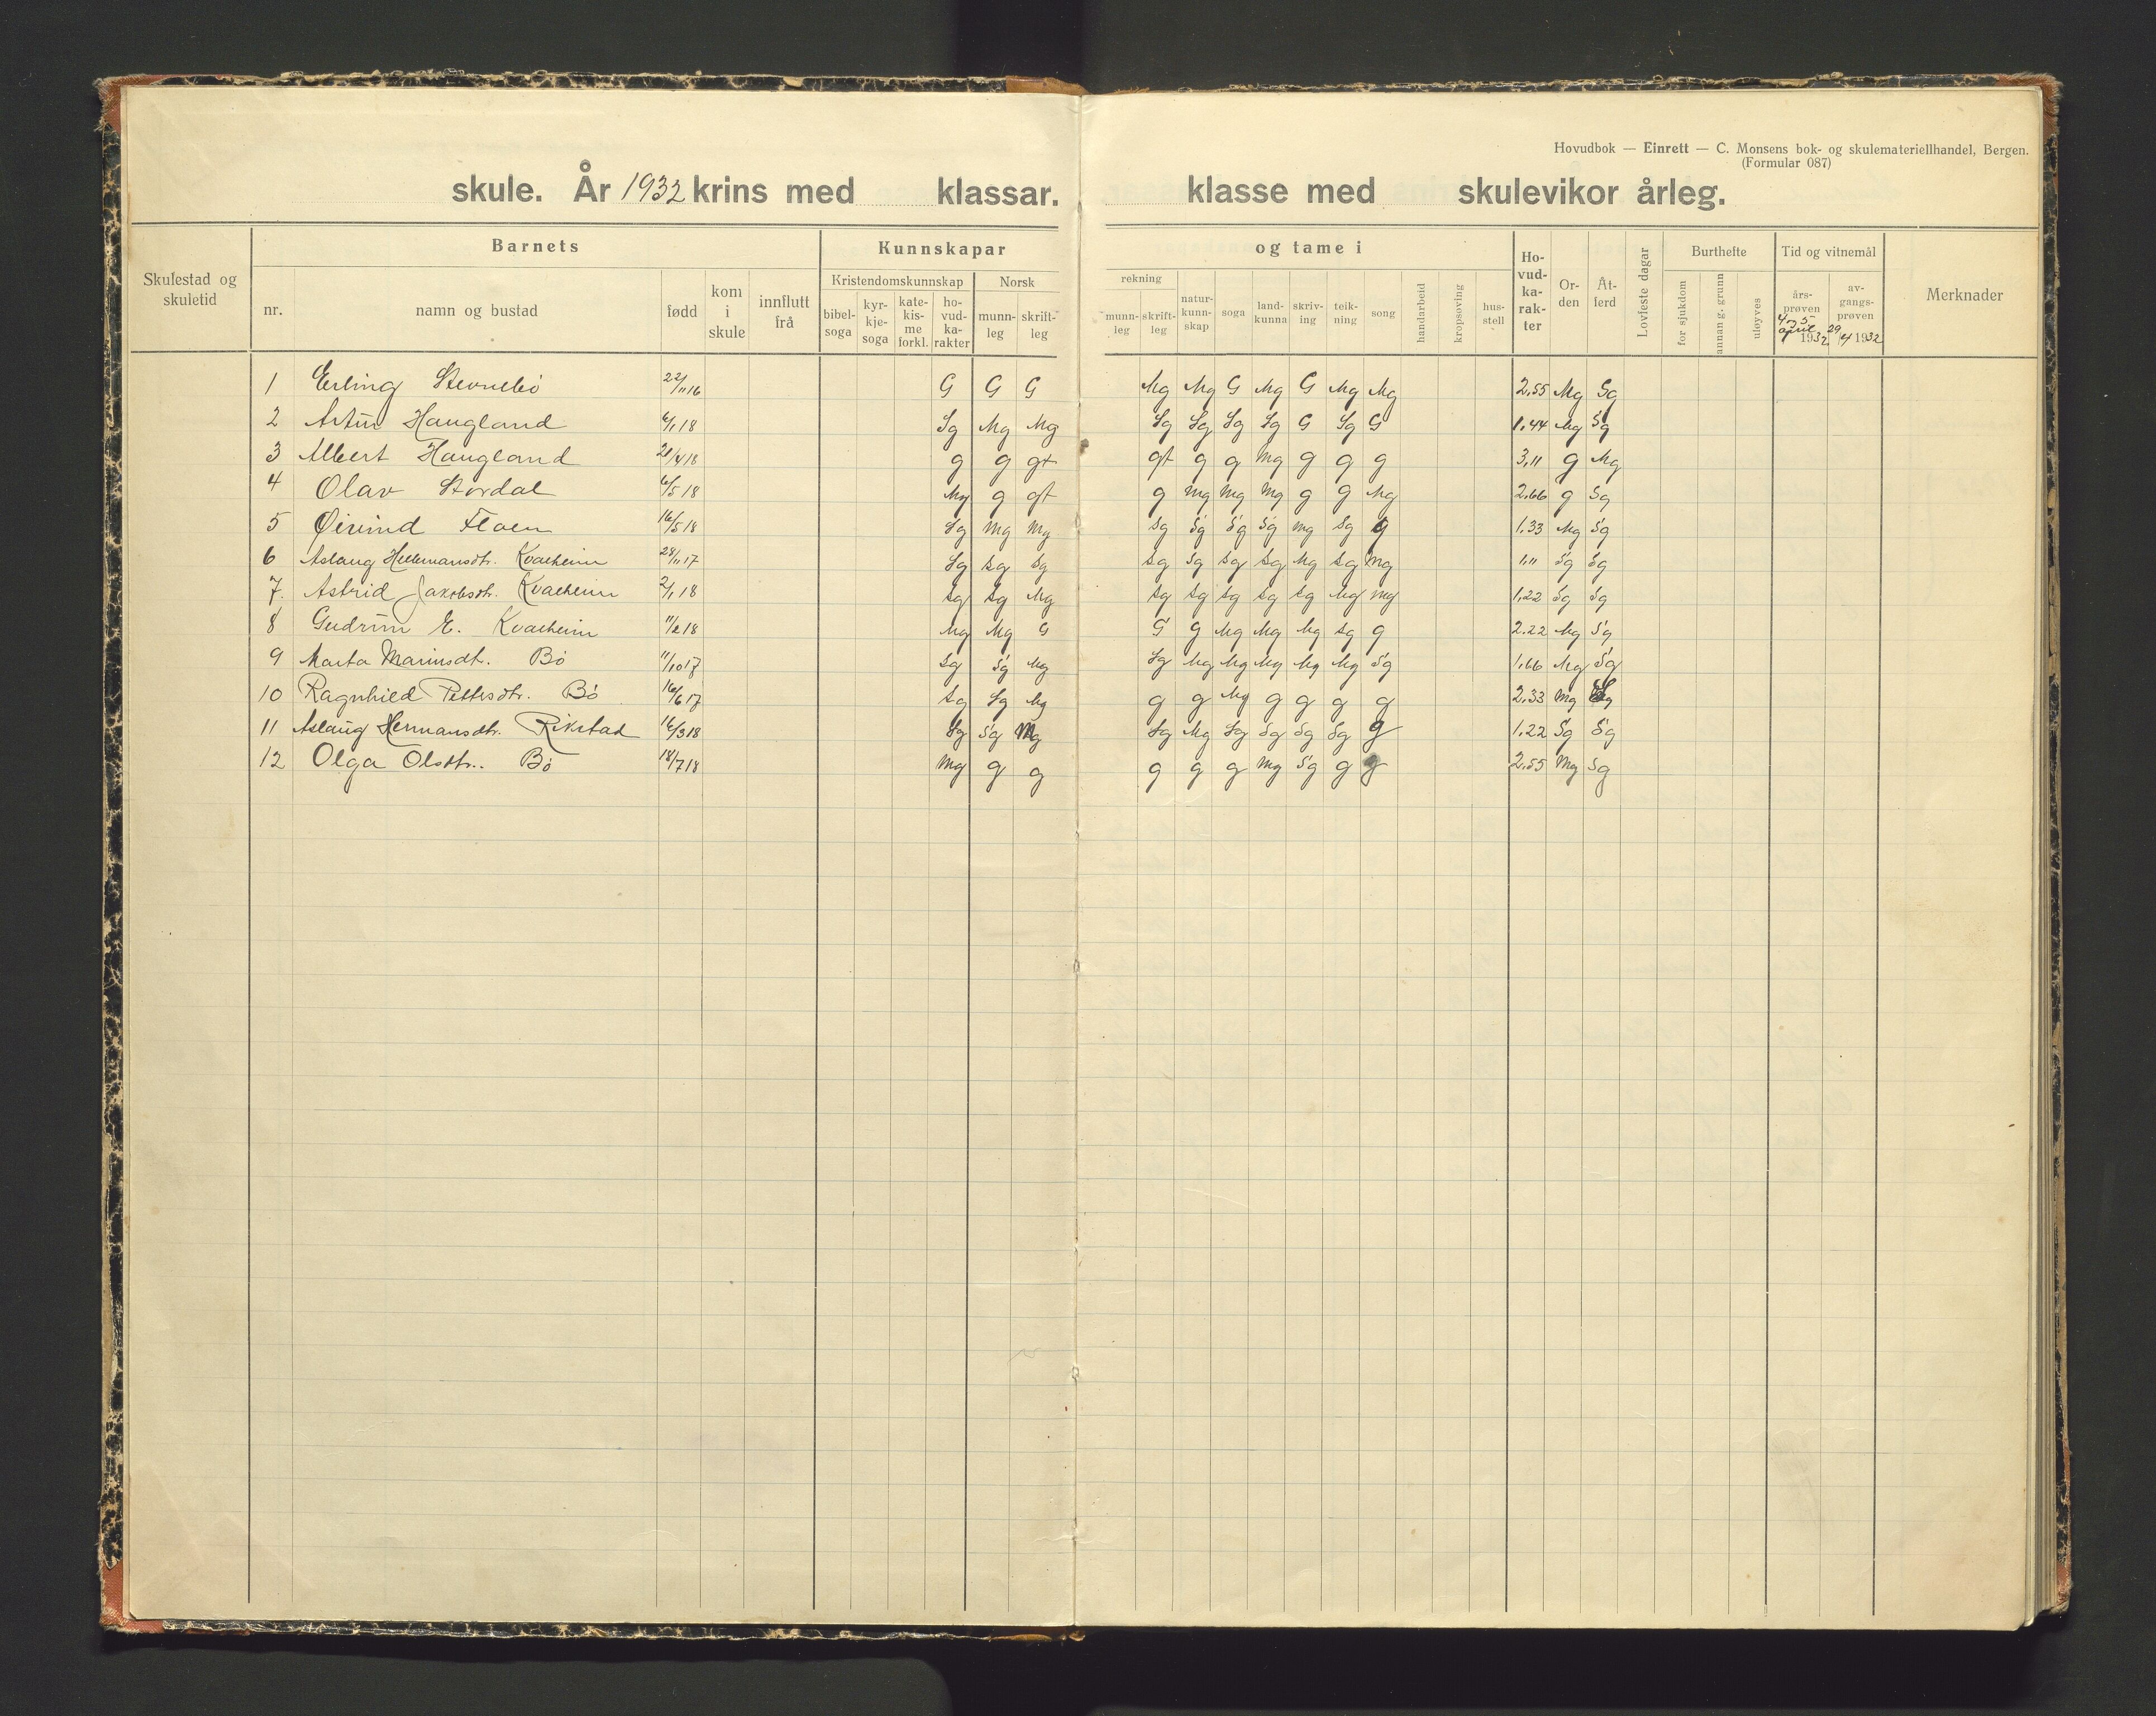 Hovudbok — Einrett — C. Monsens bok- og skulemateriellhandel, Bergen.
(Formular 087)
skule. År 1932 krins med klassar. klasse med skulevikor årleg.
Skulestad og skuletid
Barnets
nr.
namn og bustad
fødd
kom i skule
innflutt frå
Kunnskapar
Kristendomskunnskap
bibel-soga
kyr-kje-soga
kate-kis-me forkl.
ho-vud-ka-rakter
Norsk
munn-leg
skrift-leg
og tame i
rekning
munn-leg
skrift-leg
natur-kunn-skap
soga
land-kunna
skriv-ing
teik-ning
song
handarbeid
kropsøving
hus-stell
Ho-vud-ka-rak-ter
Or-den
Åt-ferd
Lovfeste dagar
Burthefte
for sjukdom
annan g. grunn
uløyves
Tid og vitnemål
års-prøven 4 og 5 april 1932
av-gangs-prøven 29/4 1932
Merknader
1 Erling Stevnebø 22/11 16 G G G Mg Mg G Mg G Mg Mg 2,55 Mg Sg
2 Artur Haugland 6/1 18 Sg Mg Mg Sg Sg Sg Sg G Sg G 1.44 Mg Sg
3 Albert Haugland 21/4 18 g g g+ g+ g g mg g g g 3,11 g Mg
4 Olav Stordal 6/5 18 Mg g g+ g mg mg mg g g Mg 2.66 g Sg
5 Øivind Floen 16/5 18 Sg mg mg Sg Sg Sg Sg mg Sg g 1.33 Mg Sg
6 Aslaug Hellemansdtr. Kvalheim 28/11 17 Sg Sg Sg Sg Sg Sg Sg Mg Sg mg 1,11 Sg Sg
7. Astrid Jakobsdtr. Kvalheim 2/1 18 Sg Sg Mg Sg Sg Sg Sg Sg Mg mg 1,22 Sg Sg
8 Gudrun E. Kvalheim 11/2 18 Mg Mg G G g Mg Mg Mg Sg g 2.22 Mg Sg
9 Marta Mariusdt. Bø 11/10 17 Sg Sg Mg Sg Mg Mg Mg Mg Mg Sg 1,66 Mg Sg
10 Ragnhild Pettersdtr. Bø 16/6 17 Sg Sg Mg g g Mg g g g g 2.33 Mg Sg
11 Aslaug Hermansdtr. Rivstad 16/3 18 Sg Sg Mg Sg Mg Sg Sg Sg Sg g 1.22 Sg Sg
12 Olga Olsdtr. Bø 18/7 18 Mg g g g g g Mg Sg g g 2.55 Mg Sg